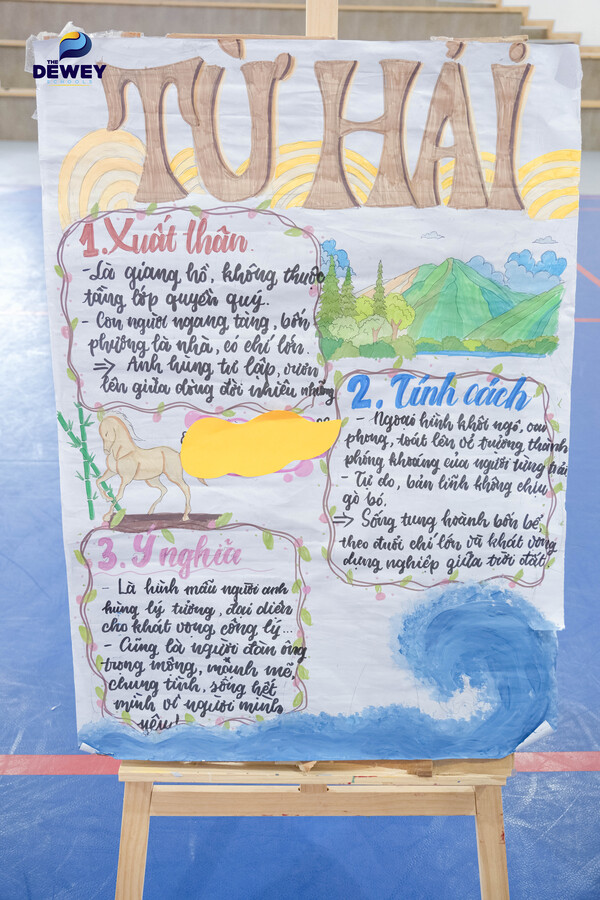 THE
DEWEY
SCHOOLS
TỪ HẢI
1. Xuất thân
- Là giang hồ, không thuộc
tầng lớp quyền quý.
- Con người ngang tàng, bốn
phương là nhà, có chí lớn.
⇒ Anh hùng tự lập, vươn
lên giữa dòng đời nhiều
2. Tính cách
- Ngoại hình khôi ngô, cao
phong, toát lên vẻ trưởng thành
phóng khoáng của người từng trải
- Tự do, bản lĩnh không chịu
gò bó.
⇒ Sống tung hoành bốn bể,
theo đuổi chí lớn và khát vọng
dựng nghiệp giữa trời đất
3. Ý nghĩa
- Là hình mẫu người anh
hùng lý tưởng, đại diện
cho khát vọng công lý...
- Cũng là người đàn ông
trong mộng, mạnh mẽ,
chung tình, sống hết
mình vì người mình
yêu!